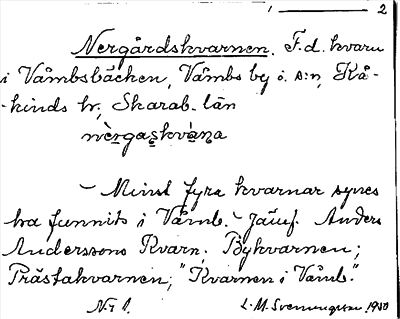 1 — 2
Nergårdskvarnen. F.d. kvarn
i Våmbsbäcken, Våmbs by o. s:n, Kå-
-kinds hr, Skarab. län
nèrgas̲kvàna
– Minst fyra kvarnar synes
ha funnits i Våmb. – Jämf. Anders
Anderssons Kvarn; Bykvarnen;
Prästakvarnen; "Kvarnen i Våmb".
N:r 1. L. M. Svenungsson 1930